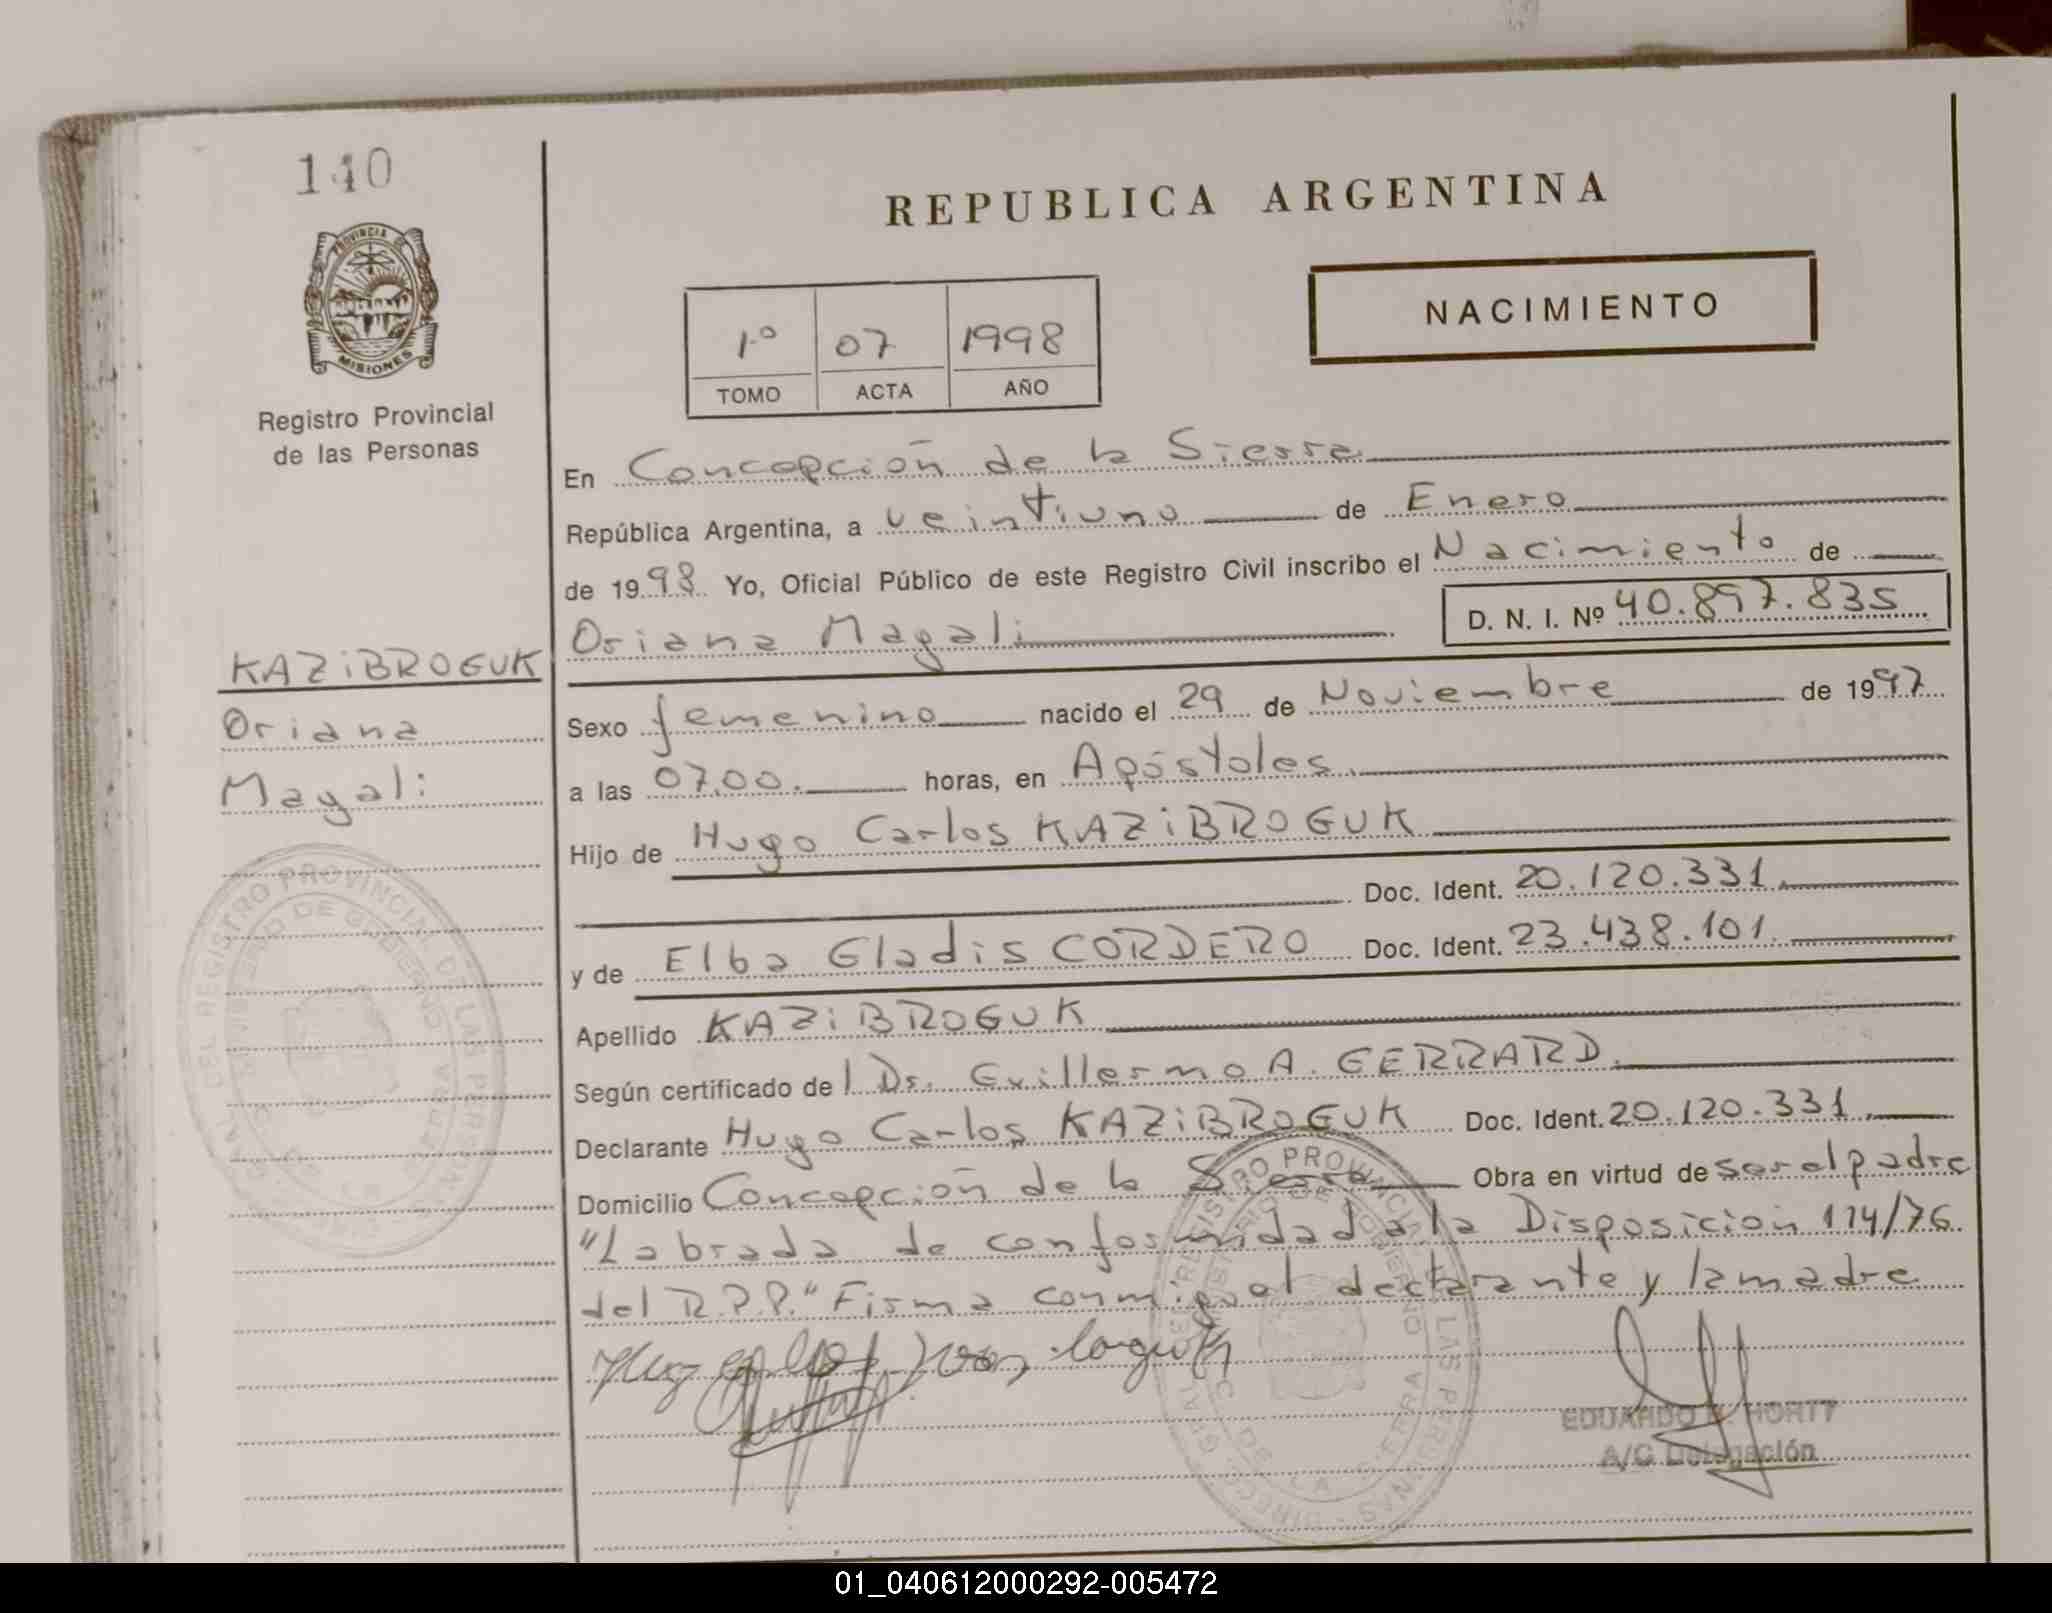 140
PROVINCIA DE
MISIONES
Registro Provincial
de las Personas
KAZiBROGUK
Oriana
Magali
REPUBLICA ARGENTINA
NACIMIENTO
1º 07 1998
TOMO ACTA AÑO
En Concepción de la Sierra
República Argentina, a veintiuno de Enero
de 1998 Yo, Oficial Público de este Registro Civil inscribo el Nacimiento de
Oriana Magali D. N. I. Nº 40.897.835
Sexo femenino nacido el 29 de Noviembre de 1997
a las 07.00. horas, en Apóstoles.
Hijo de Hugo Carlos KAZiBROGUK
Doc. Ident. 20.120.331.
y de Elba Gladis CORDERO Doc. Ident. 23.438.101.
Apellido KAZiBROGUK
Según certificado de l Dr. Guillermo A. GERRARD.
Declarante Hugo Carlos KAZiBROGUK Doc. Ident. 20.120.331.
Domicilio Concepción de la Sierra Obra en virtud de ser el padre
"Labrada de conformidad a la Disposición 114/76
del R.P.P." Firma conmigo el declarante y la madre
EDUARDO HORTT
A/C Delegación
01_040612000292-005472